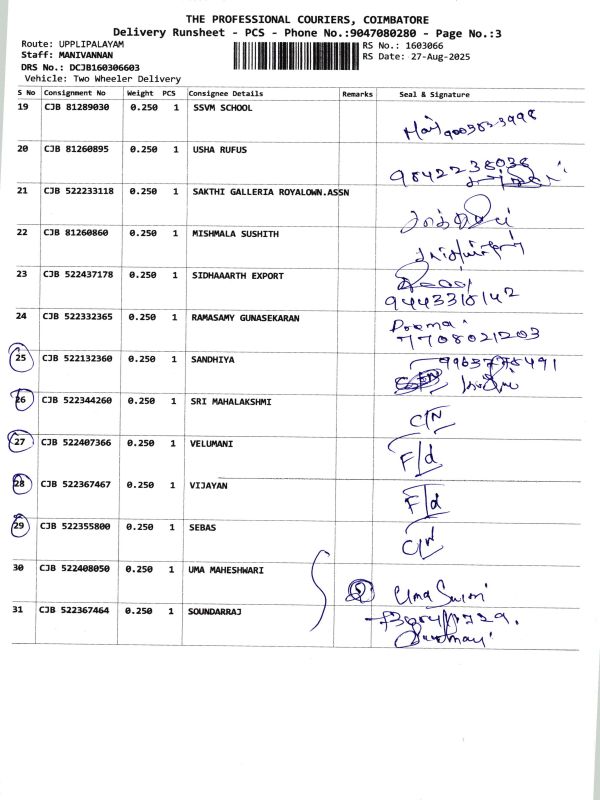 THE PROFESSIONAL COURIERS, COIMBATORE
Delivery Runsheet - PCS - Phone No.:9047080280 - Page No.:3
Route: UPPLIPALAYAM RS No.: 1603066
Staff: MANIVANNAN RS Date: 27-Aug-2025
DRS No.: DCJB160306603
Vehicle: Two Wheeler Delivery
S No Consignment No Weight PCS Consignee Details Remarks Seal & Signature
19 CJB 81289030 0.250 1 SSVM SCHOOL
20 CJB 81260895 0.250 1 USHA RUFUS
9842238038
21 CJB 522233118 0.250 1 SAKTHI GALLERIA ROYALOWN.ASSN
22 CJB 81260860 0.250 1 MISHMALA SUSHITH
23 CJB 522437178 0.250 1 SIDHAAARTH EXPORT
9443310142
24 CJB 522332365 0.250 1 RAMASAMY GUNASEKARAN
7708021203
25 CJB 522132360 0.250 1 SANDHIYA
26 CJB 522344260 0.250 1 SRI MAHALAKSHMI C/N
27 CJB 522407366 0.250 1 VELUMANI F/d
28 CJB 522367467 0.250 1 VIJAYAN F/d
29 CJB 522355800 0.250 1 SEBAS C/N
30 CJB 522408050 0.250 1 UMA MAHESHWARI Uma
31 CJB 522367464 0.250 1 SOUNDARRAJ